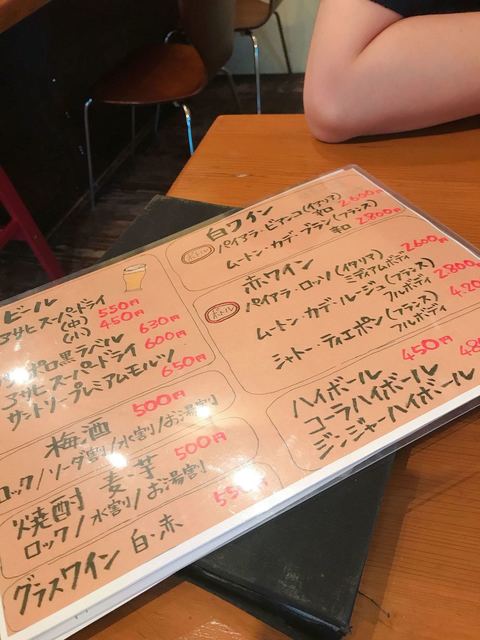 ビール
アサヒスーパードライ
(中) 550円
(小) 450円
サッポロ黒ラベル 630円
アサヒスーパードライ 600円
サントリープレミアムモルツ 650円
梅酒 500円
ロック/ソーダ割/水割/お湯割
焼酎 麦・芋 500円
ロック/水割/お湯割
グラスワイン 白・赤 550
白ワイン
ボトル
パイアラ・ビアンコ(イタリア) 2600円
辛口
ムートン・カデ・ブラン(フランス) 2800円
辛口
赤ワイン
ボトル
パイアラ・ロッソ(イタリア) 2600円
ミディアムボディ
ムートン・カデ・ルージュ(フランス) 2800
フルボディ
シャトー・ティエポン(フランス) 4.20
フルボディ
ハイボール 450円
コーラハイボール 48
ジンジャーハイボール